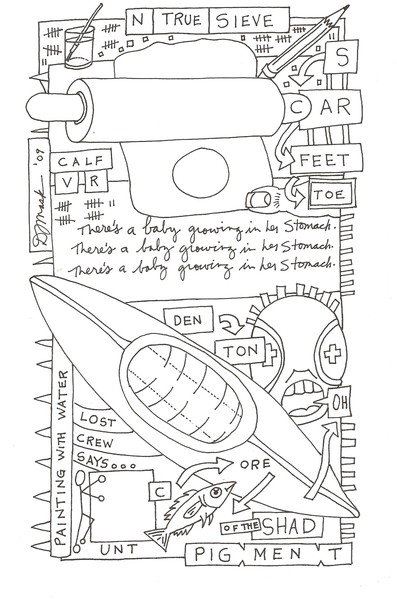 N TRUE SIEVE
S
C AR
FEET
TOE
CALF
V R
D. Maak — '09
There's a baby growing in her Stomach.
There's a baby growing in her Stomach.
There's a baby growing in her Stomach.
DEN
TON
OH
PAINTING WITH WATER
LOST
CREW
SAYS...
ORE
C
OF THE SHAD
UNT
PIG MEN T